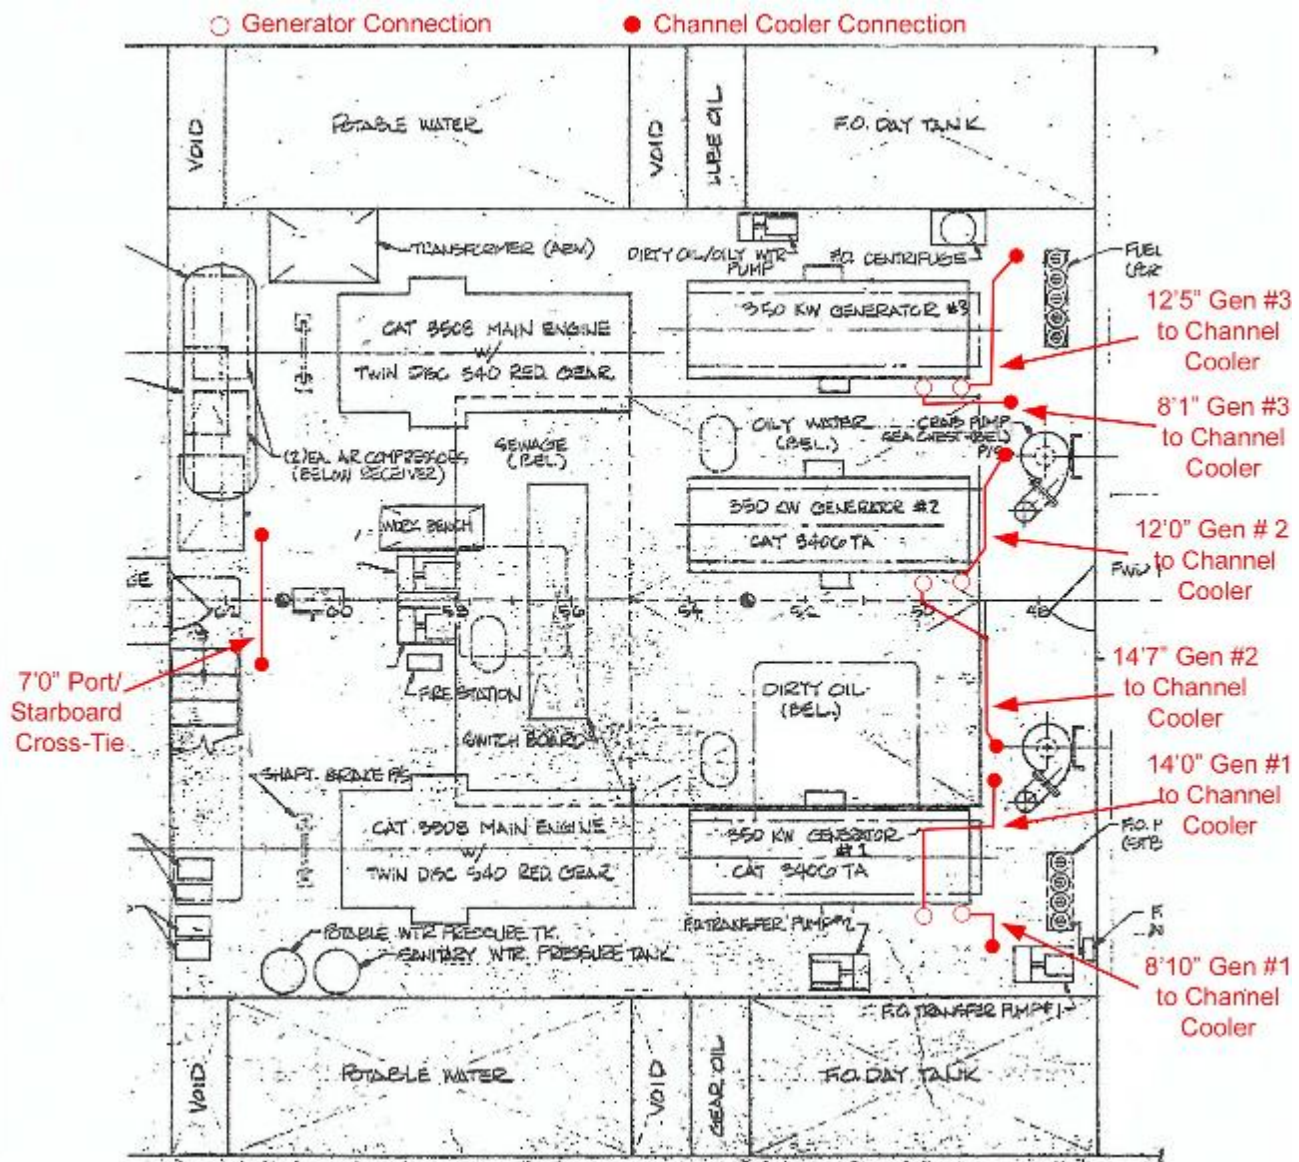 Generator Connection
Channel Cooler Connection
VOID
POTABLE WATER
VOID
LUBE OIL
F.O. DAY TANK
TRANSFORMER (ABV.)
DIRTY OIL/OILY WTR
PUMP
F.O. CENTRIFUGE
FUEL
12'5" Gen #3
to Channel
Cooler
CAT 3508 MAIN ENGINE
W/
TWIN DISC 540 RED. GEAR
350 KW GENERATOR #3
8'1" Gen #3
to Channel
Cooler
(2) EA. AIR COMPRESSORS
(BELOW RECEIVER)
SEWAGE
(BEL.)
OILY WATER
(BEL.)
CRAB PUMP
SEA CHEST (BEL)
P/S
WORK BENCH
350 KW GENERATOR #2
CAT 3406 TA
12'0" Gen # 2
to Channel
Cooler
FWD
62
60
58
56
54
52
50
48
7'0" Port/
Starboard
Cross-Tie
FIRE STATION
SWITCH BOARD
DIRTY OIL
(BEL.)
14'7" Gen #2
to Channel
Cooler
SHAFT BRAKE P/S
14'0" Gen #1
to Channel
Cooler
CAT 3508 MAIN ENGINE
W/
TWIN DISC 540 RED. GEAR
350 KW GENERATOR
#1
CAT 3406 TA
POTABLE WTR PRESSURE TK.
SANITARY WTR. PRESSURE TANK
F.O. TRANSFER PUMP #2
8'10" Gen #1
to Channel
Cooler
F.O. TRANSFER PUMP #1
VOID
POTABLE WATER
VOID
GEAR OIL
F.O. DAY TANK